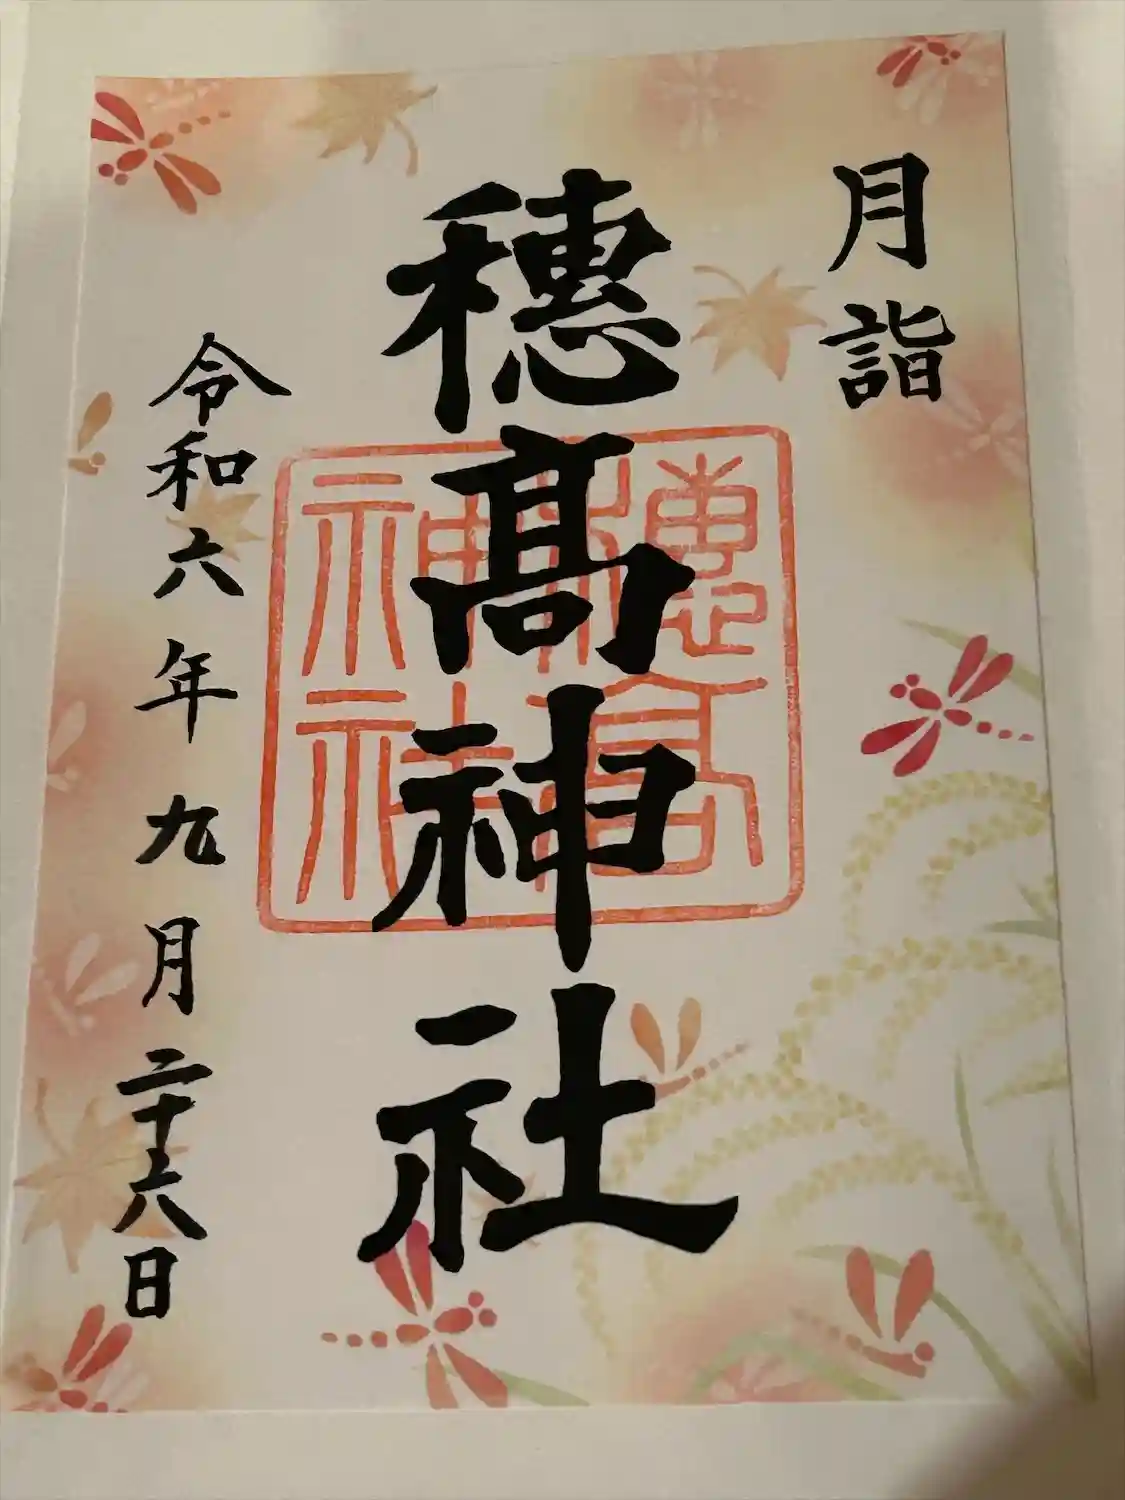 月詣
穂髙神社
穂高神社
令和六年九月二十六日